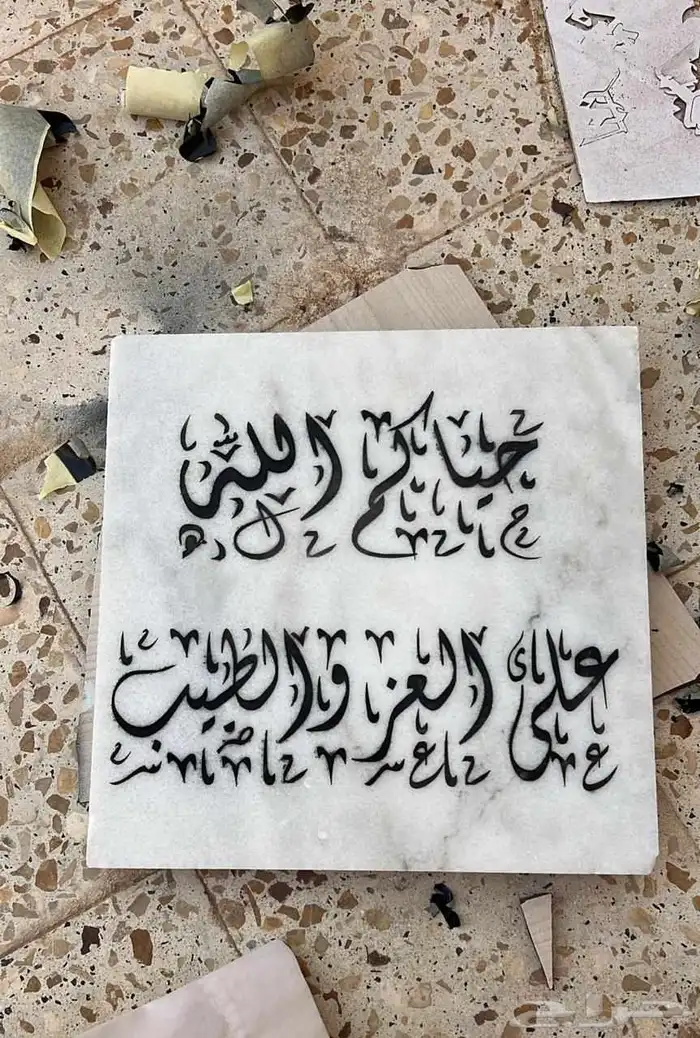 حياكم الله
على العز والطيب
حراج